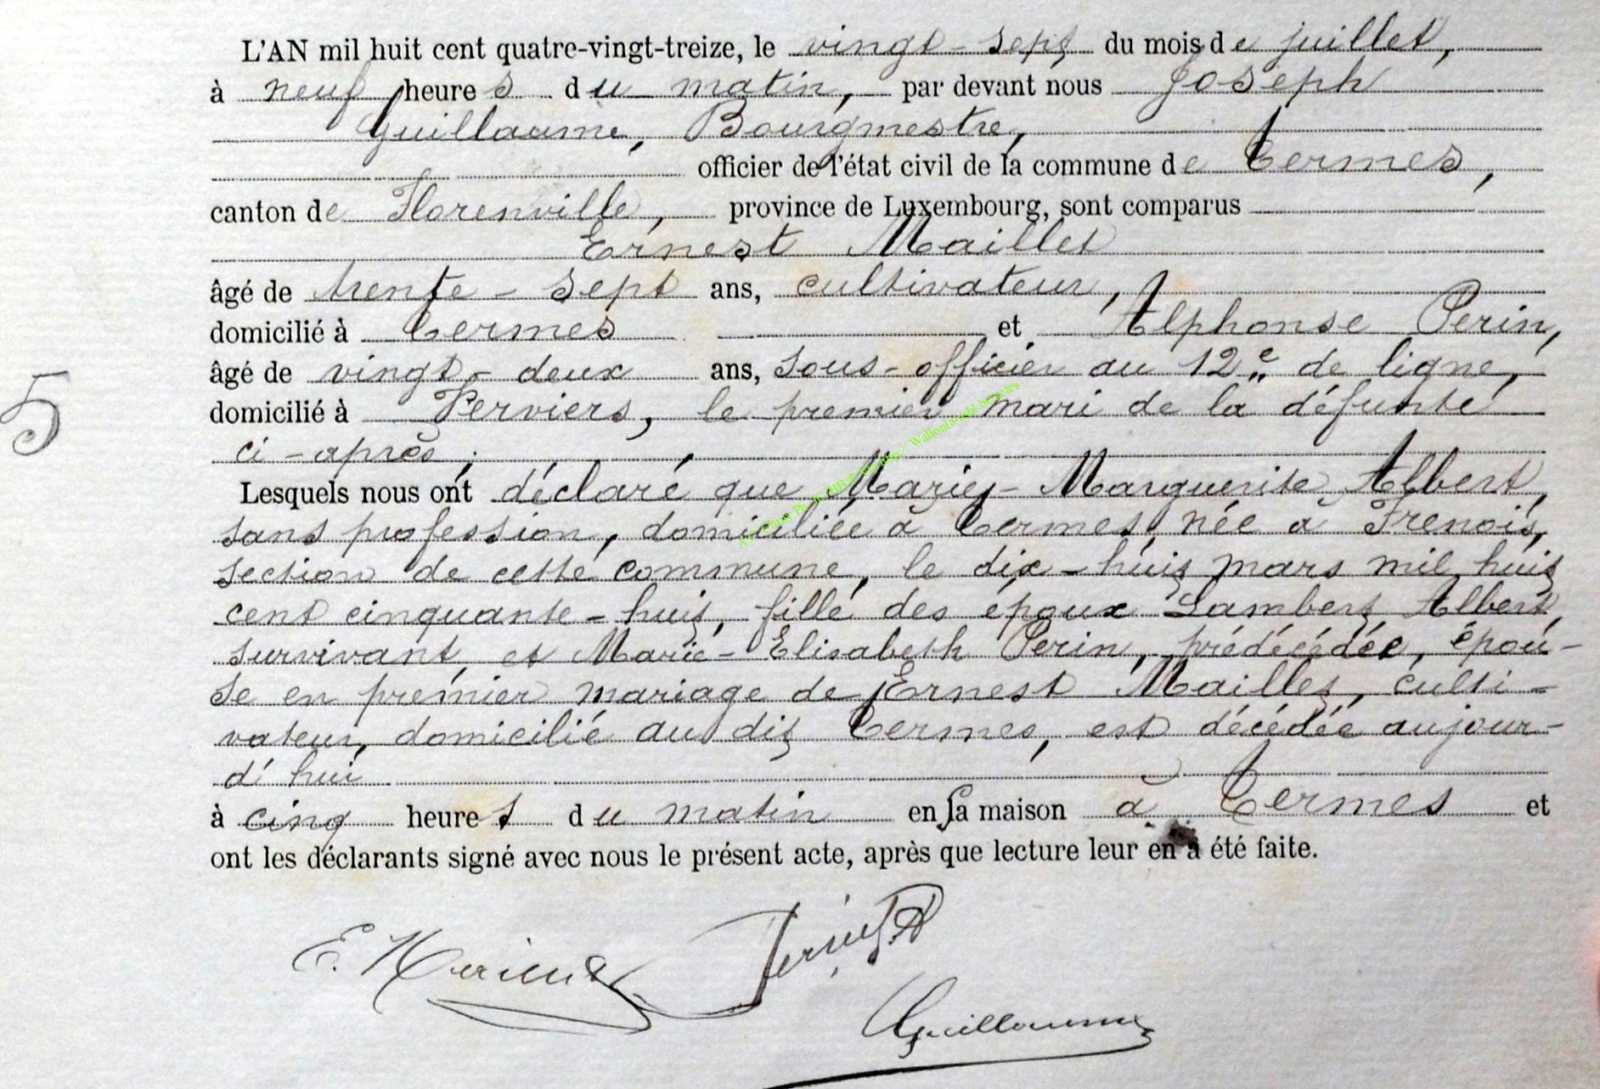 L'AN mil huit cent quatre-vingt-treize, le vingt-sept du mois de juillet,
à neuf heures du matin, par devant nous Joseph
Guillaume, Bourgmestre,
officier de l'état civil de la commune de Termes,
canton de Florenville, province de Luxembourg, sont comparus
Ernest Maillet
âgé de trente-sept ans, cultivateur,
domicilié à Termes et Alphonse Perin,
âgé de vingt-deux ans, sous-officier au 12e de ligne,
domicilié à Verviers, le premier mari de la défunte
5
ci-après;
Lesquels nous ont déclaré que Marie-Marguerite Albert,
sans profession, domiciliée à Termes, née à Frenois,
section de cette commune, le dix-huit mars mil huit
cent cinquante-huit, fille des époux Lambert Albert,
survivant, et Marie-Elisabeth Perin, prédécédée, épou-
se en premier mariage de Ernest Maillet, culti-
vateur, domicilié au dit Termes, est décédée aujour-
d'hui
à cinq heures du matin en sa maison à Termes et
ont les déclarants signé avec nous le présent acte, après que lecture leur en a été faite.
E.
Guillaume